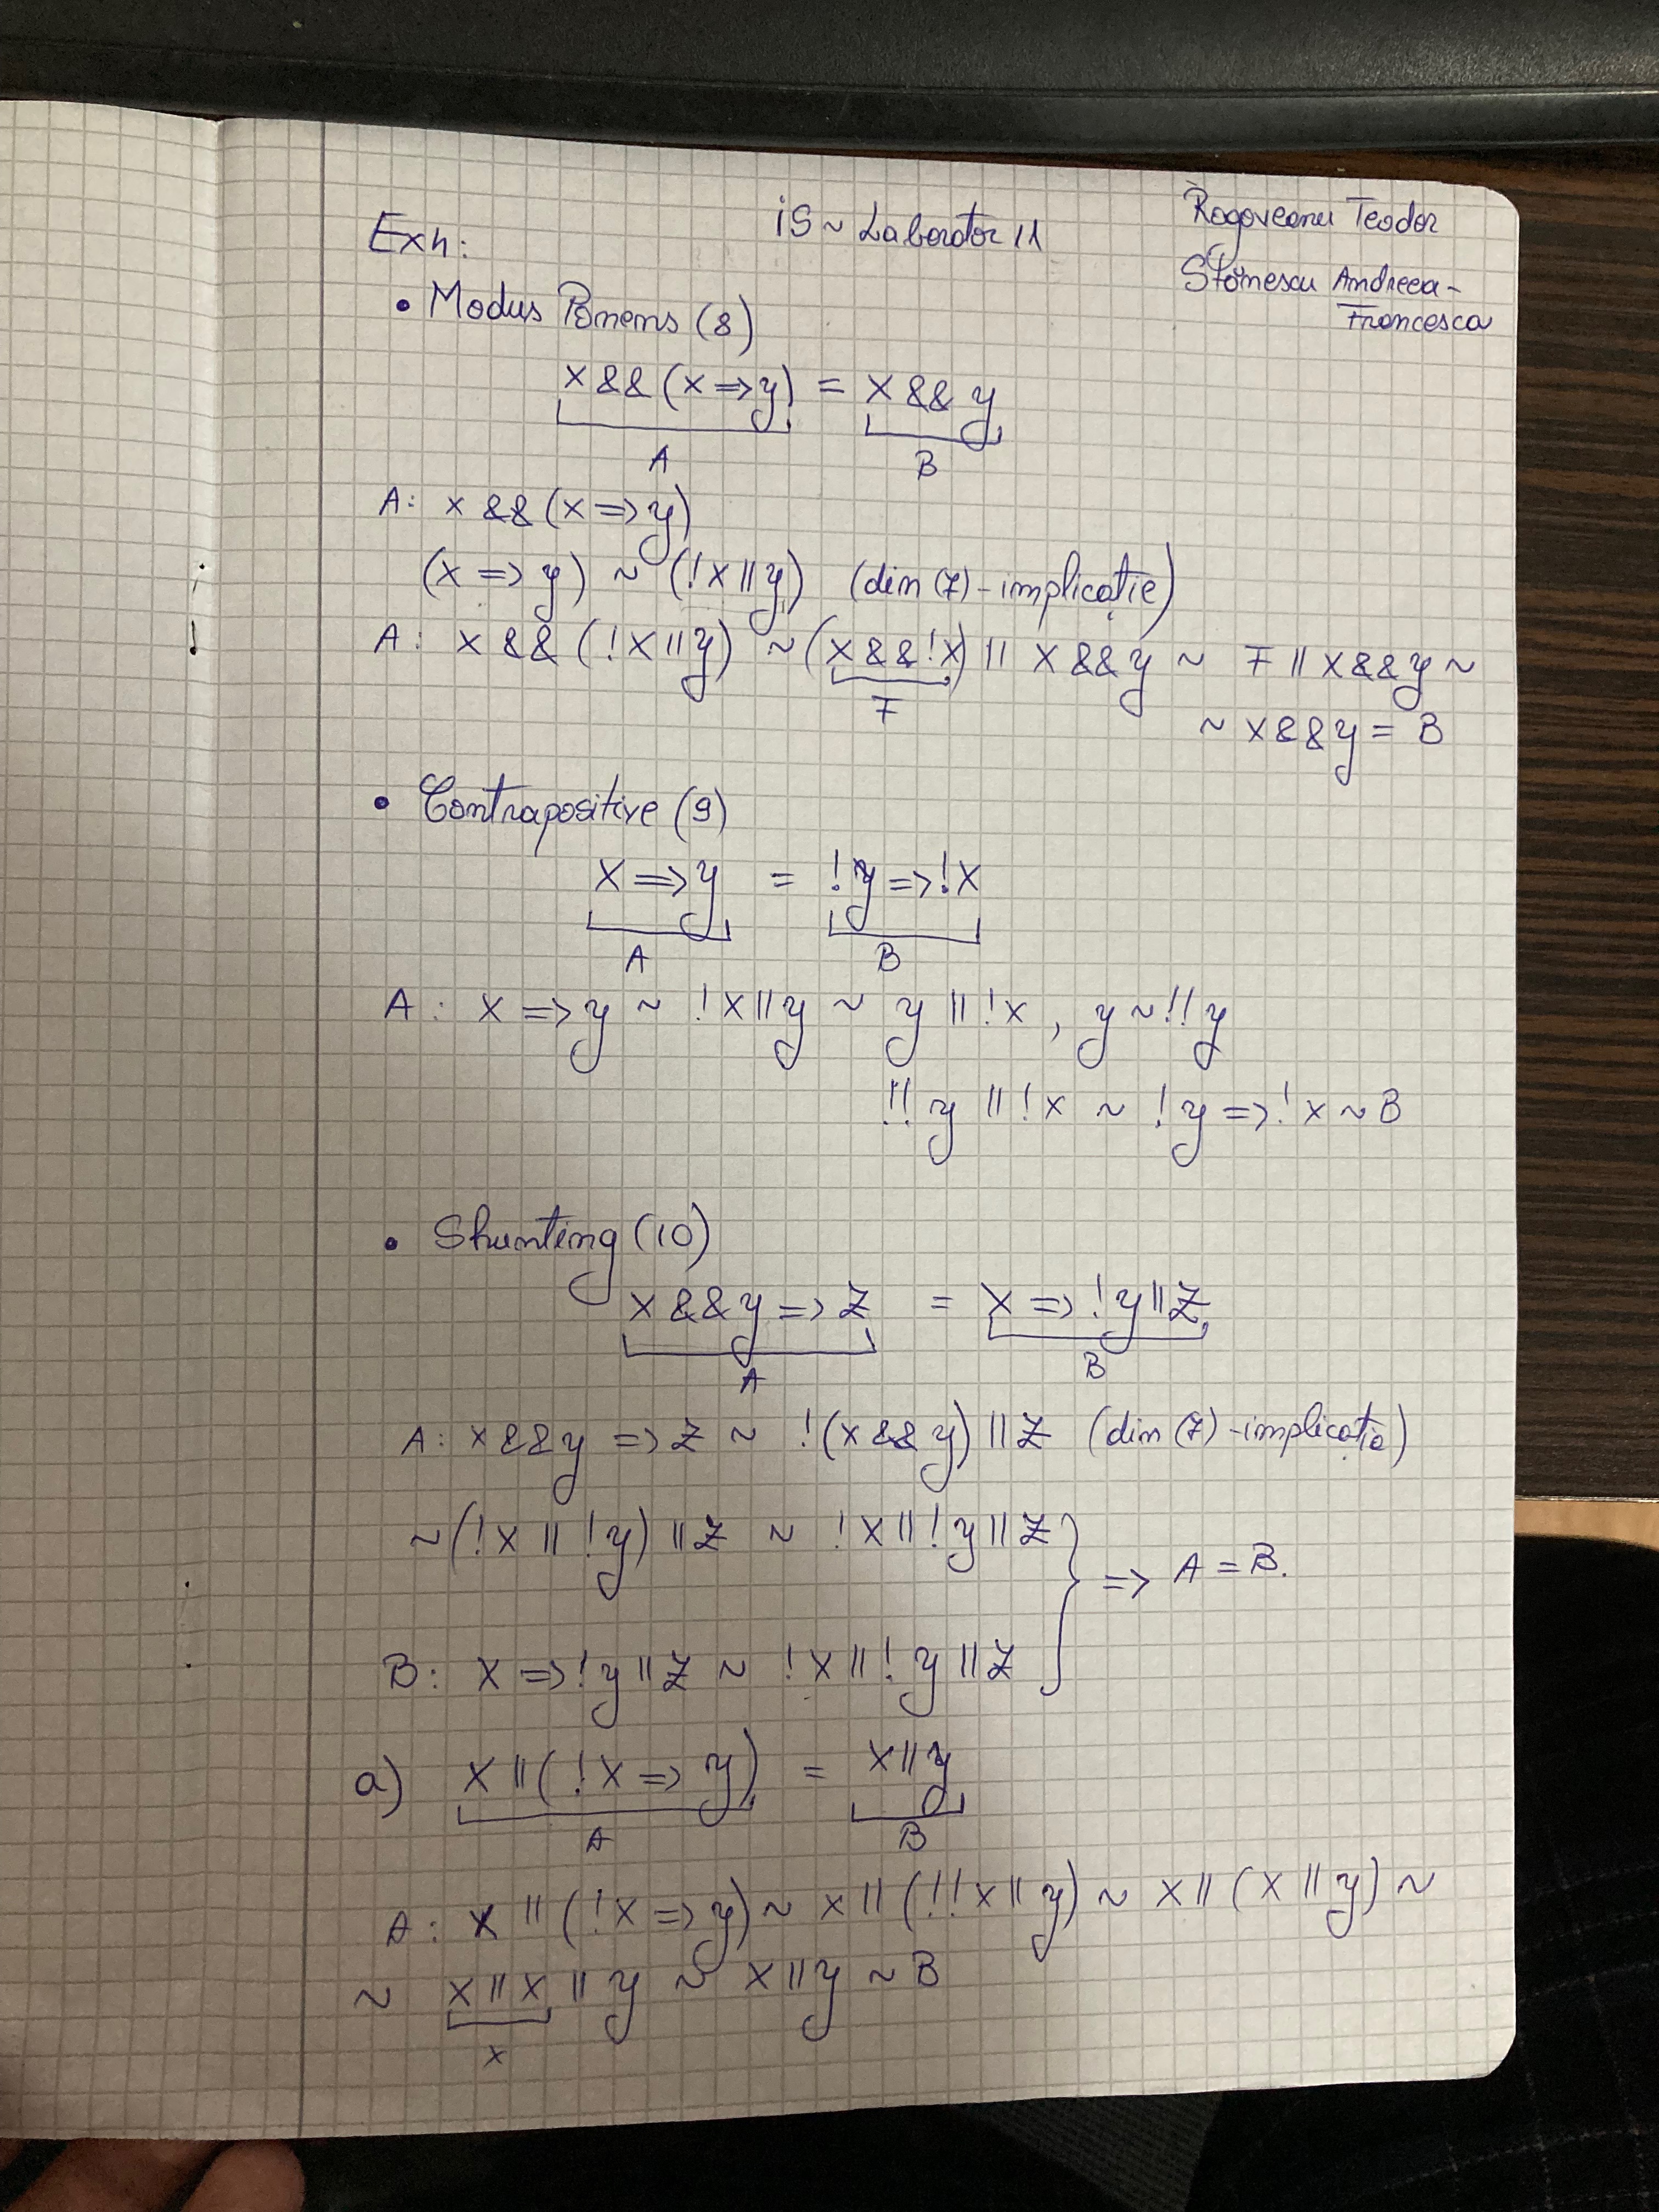 Ex4: iS ~ Laborator 11 Rogoveanu Teodor
Stănescu Andreea-
Francesca
• Modus Ponens (8)
x && (x => y) = x && y
A B
A: x && (x => y)
(x => y) ~ (!x || y) (din (7) - implicație)
A: x && (!x || y) ~ (x && !x) || x && y ~ F || x && y ~
F
~ x && y = B
• Contrapositive (9)
x => y = !y => !x
A B
A: x => y ~ !x || y ~ y || !x , y ~ !!y
!!y || !x ~ !y => !x ~ B
• Shunting (10)
x && y => z = x => !y || z
A B
A: x && y => z ~ !(x && y) || z (din (7) - implicația)
~ (!x || !y) || z ~ !x || !y || z } => A = B.
B: x => !y || z ~ !x || !y || z
a) x || (!x => y) = x || y
A B
A: x || (!x => y) ~ x || (!!x || y) ~ x || (x || y) ~
~ x || x || y ~ x || y ~ B
x